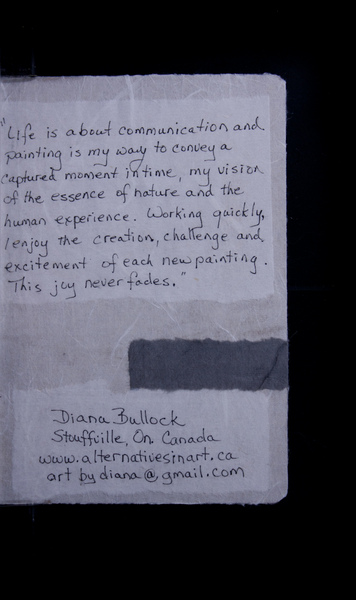 "Life is about communication and
painting is my way to convey a
captured moment in time, my vision
of the essence of nature and the
human experience. Working quickly,
I enjoy the creation, challenge and
excitement of each new painting.
This joy never fades."
Diana Bullock
Stouffville, On. Canada
www.alternativesinart.ca
art by diana@gmail.com